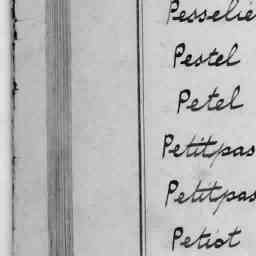 Pesselie
Pestel
Petel
Petitpas
Petitpas
Petiot